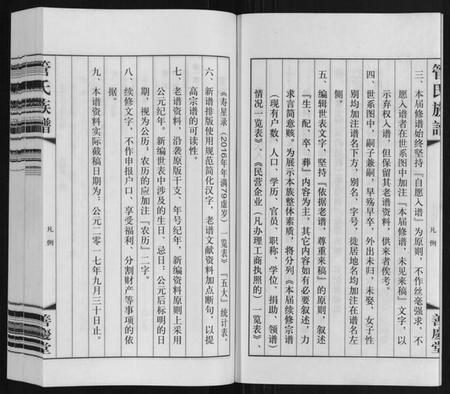 管氏族譜
凡例
善慶堂
三、本届修谱始终坚持『自愿入谱』为原则，不作丝毫强求，不
愿入谱者在世系图中加注『本届修谱，未见来稿』文字，以
示弃权入谱，但保留其老谱资料，供来者俟考。
四、世系图中，嗣子兼嗣，早殇早卒，外出未归，未娶，女子性
别均加注在谱名下方，别名，字号，徙居地名均加注在谱名左
侧。
五、编辑世表文字，坚持『依据老谱，尊重来稿』的原则，叙述
『生，配，卒，葬』内容为主，其它内容如有必要叙述，力
求言简意赅，为展示本族整体素质，将分列《本届续修宗谱
（现有户数、人口、学历、官员、职称、学位、捐助、领谱）
情况一览表》、《民营企业（凡办理工商执照的）一览表》、
《寿星录（2016年年满79虚岁）一览表》『五大』统计表。
六、新谱排版使用规范简化汉字，老谱文献资料加点断句，以提
高宗谱的可读性。
七、老谱资料，沿袭原版干支、年号纪年，新编资料原则上采用
公元纪年。新编世表中涉及的生日、忌日；公元后标明的日
期，视为公历，农历的应加注『农历』二字。
八、续修文字，不作申报户口，享受福利、分割财产等事项的依
据。
九、本谱资料实际截稿日期为：公元二零一七年九月三十日止。
管氏族譜
凡例
善慶堂